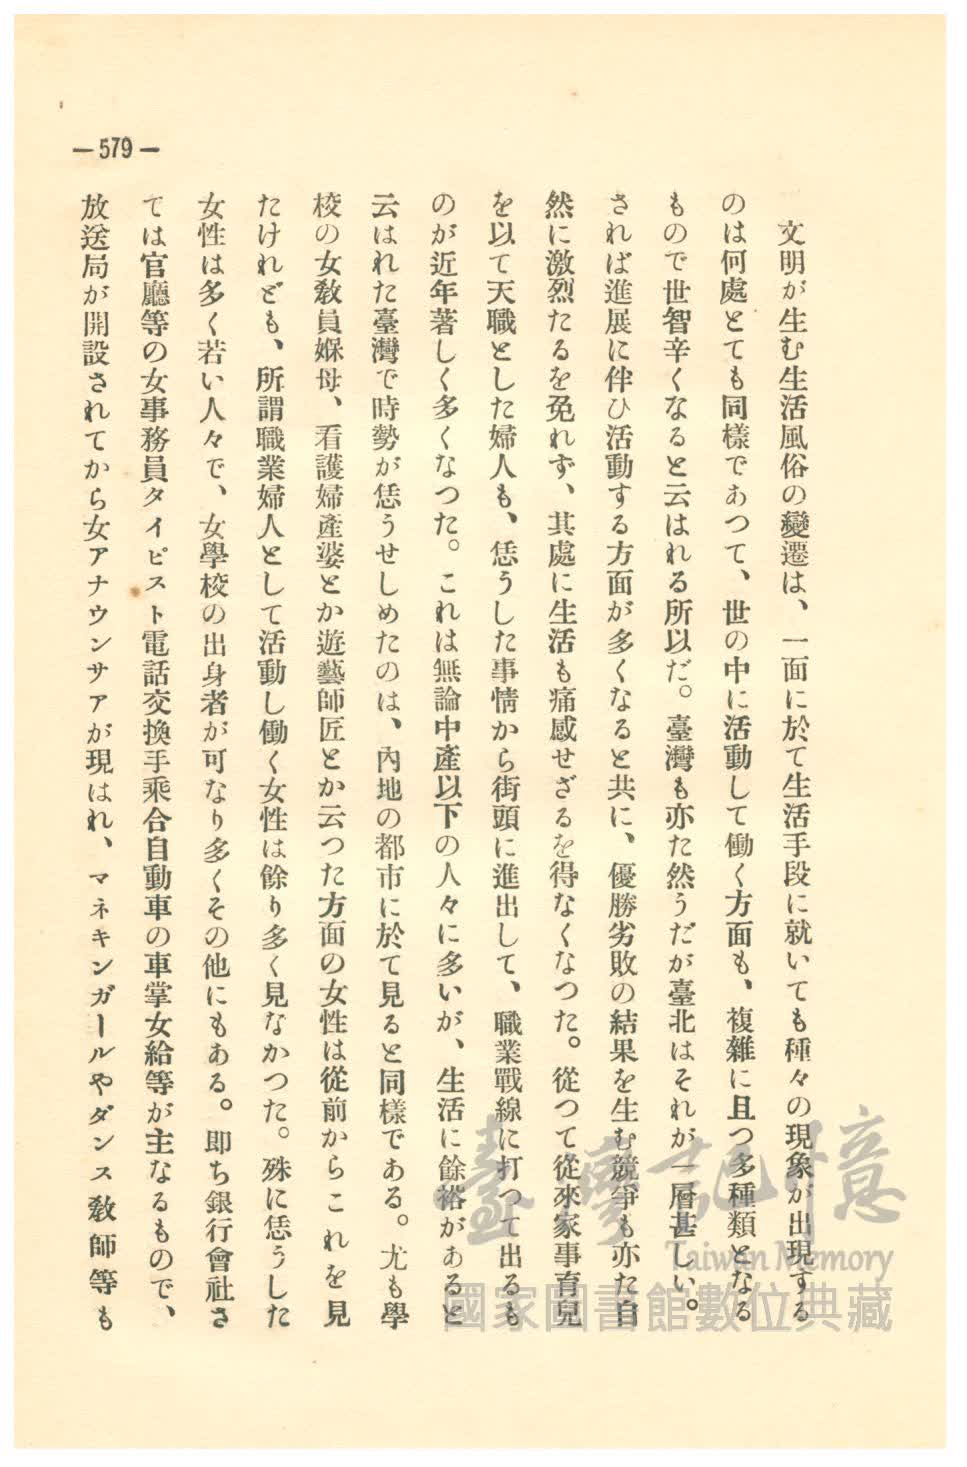 — 579 —
文明が生む生活風俗の變遷は、一面に於て生活手段に就いても種々の現象が出現する
のは何處とても同樣であつて、世の中に活動して働く方面も、複雜に且つ多種類となる
もので世智辛くなると云はれる所以だ。臺灣も亦た然うだが臺北はそれが一層甚しい。
されば進展に伴ひ活動する方面が多くなると共に、優勝劣敗の結果を生む競爭も亦た自
然に激烈たるを免れず、其處に生活も痛感せざるを得なくなつた。從つて從來家事育兒
を以て天職とした婦人も、恁うした事情から街頭に進出して、職業戰線に打つて出るも
のが近年著しく多くなつた。これは無論中產以下の人々に多いが、生活に餘裕があると
云はれた臺灣で時勢が恁うせしめたのは、內地の都市に於て見ると同樣である。尤も學
校の女敎員媬母、看護婦產婆とか遊藝師匠とか云つた方面の女性は從前からこれを見
たけれども、所謂職業婦人として活動し働く女性は餘り多く見なかつた。殊に恁うした
女性は多く若い人々で、女學校の出身者が可なり多くその他にもある。卽ち銀行會社さ
ては官廳等の女事務員タイピスト電話交換手乘合自動車の車掌女給等が主なるもので、
放送局が開設されてから女アナウンサアが現はれ、マネキンガールやダンス敎師等も
臺灣記憶
Taiwan Memory
國家圖書館數位典藏